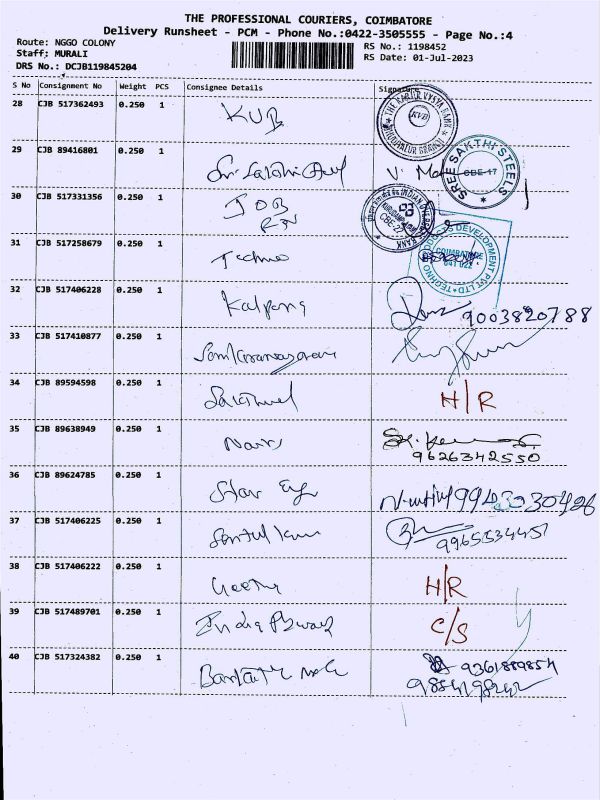 THE PROFESSIONAL COURIERS, COIMBATORE
Delivery Runsheet - PCM - Phone No.:0422-3505555 - Page No.:4
Route: NGGO COLONY
Staff; MURALI
DRS No.: DCJB119845204
RS No.: 1198452
RS Date: 01-Jul-2023
S No Consignment No Weight PCS Consignee Details Signature
28 CJB 517362493 0.250 1 KVB THE KARUR VYSYA BANK KVB
29 CJB 89416801 0.250 1 V. SREE SAKTHI STEELS CBE-17
30 CJB 517331356 0.250 1 IOB INDIAN OVERSEAS BANK
31 CJB 517258679 0.250 1 Techno TECHNO PRODUCTS DEVELOPMENT PVT LTD COIMBATORE 641 022
32 CJB 517406228 0.250 1 Kalpana 9003820788
33 CJB 517410877 0.250 1
34 CJB 89594598 0.250 1 H/R
35 CJB 89638949 0.250 1 9626342550
36 CJB 89624785 0.250 1 Star
37 CJB 517406225 0.250 1 9965534451
38 CJB 517406222 0.250 1 Geetha H/R
39 CJB 517489701 0.250 1 India C/S
40 CJB 517324382 0.250 1 9361889854